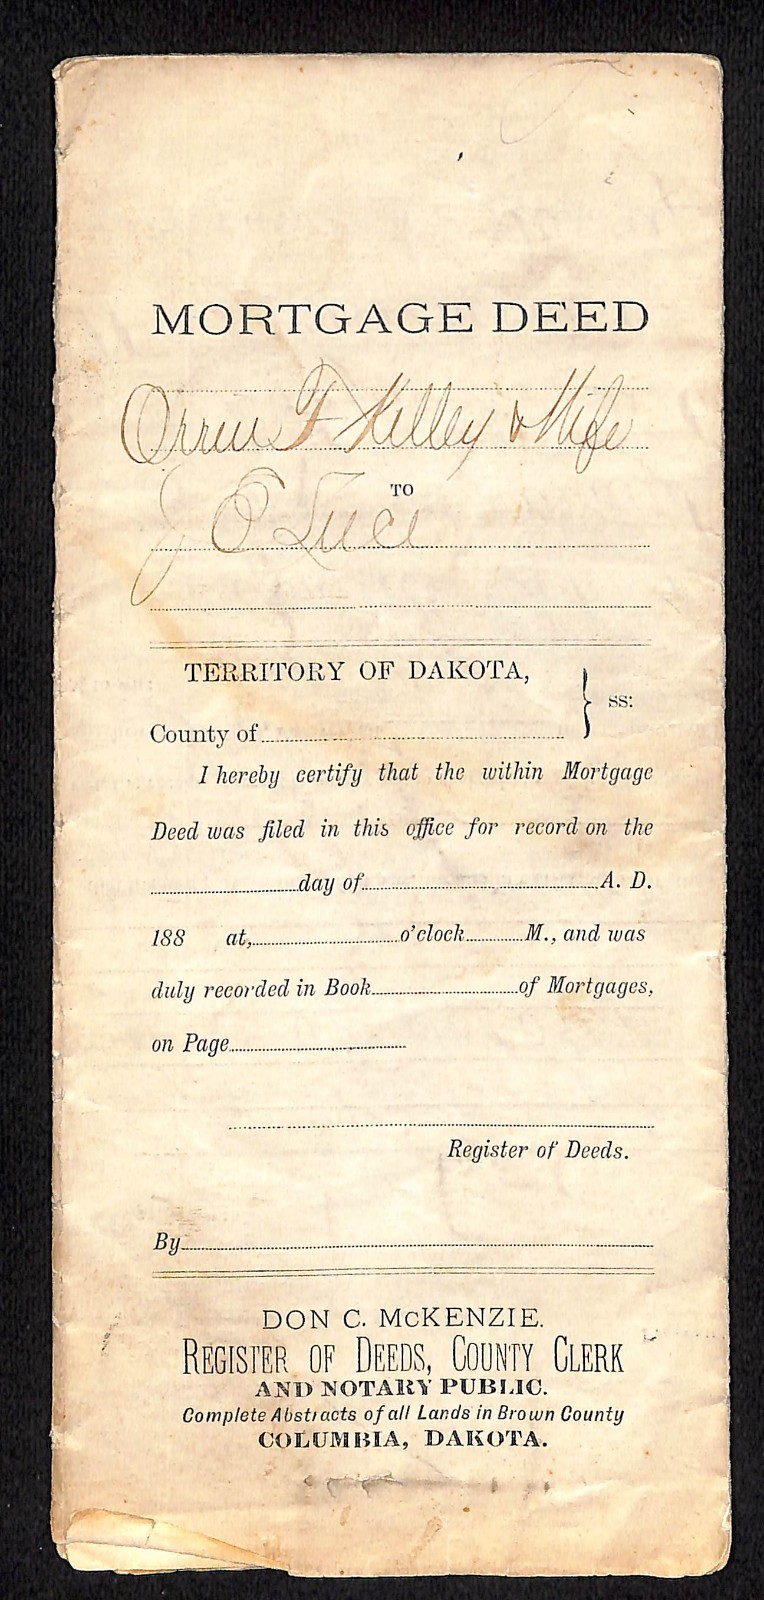 MORTGAGE DEED
Orrin F Kelley & Wife
TO
J O Luce
TERRITORY OF DAKOTA,
ss:
County of
I hereby certify that the within Mortgage
Deed was filed in this office for record on the
day of A. D.
188 at, o'clock M., and was
duly recorded in Book of Mortgages,
on Page
Register of Deeds.
By
DON C. McKENZIE.
REGISTER OF DEEDS, COUNTY CLERK
AND NOTARY PUBLIC.
Complete Abstracts of all Lands in Brown County
COLUMBIA, DAKOTA.